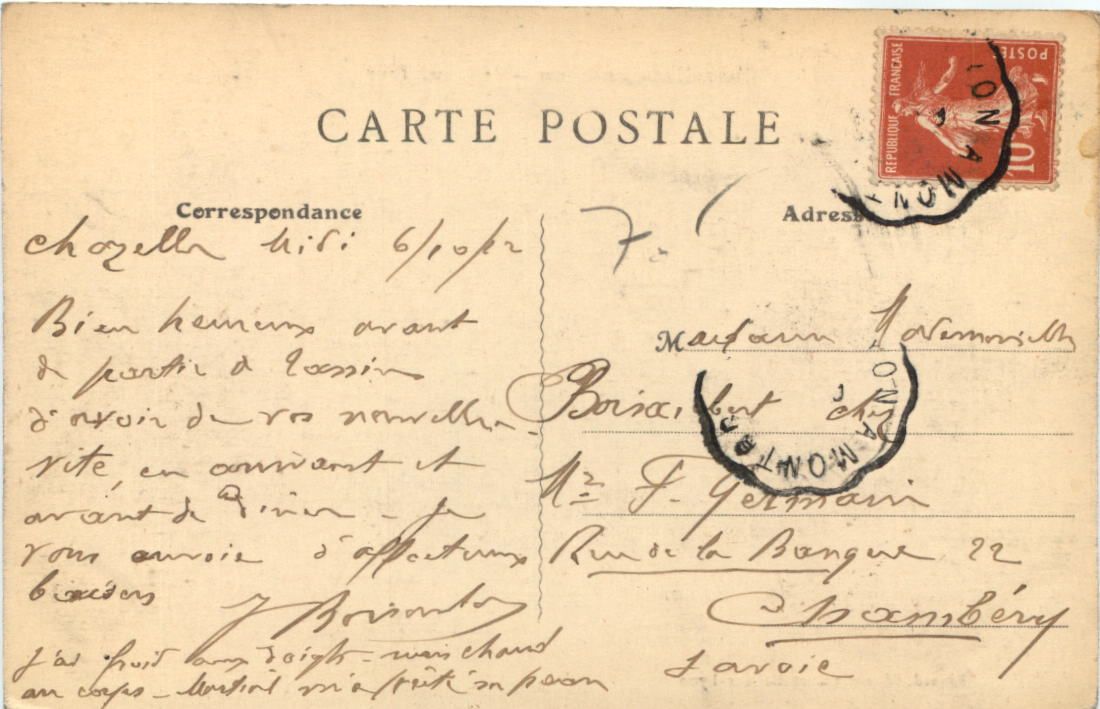 CARTE POSTALE
REPUBLIQUE FRANÇAISE
POSTES
10
Correspondance
Adresse
Midi 6/10/12
Bien heureux avant
de partir de Tassin
d'avoir de vos nouvelles
vite, en arrivant et
avant de Diner - Je
vous envoie d'affectueux
baisers
J'ai froid aux doigts - mais chaud
au corps - Martial m'a prêté sa peau
Madame Mademoiselle
chez
Mr F. Germain
Rue de la Banque 22
Chambéry
Savoie